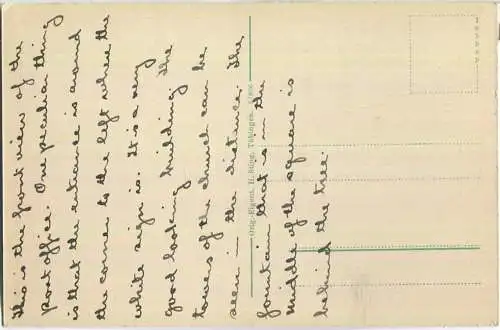 This is the front view of the
Post office. One peculiar thing
is that the entrance is around
the corner to the left where the
white sign is. It is a very
good looking building. The
towers of the church can be
seen in the distance. The
fountain that is in the
middle of the square is
behind the tree.